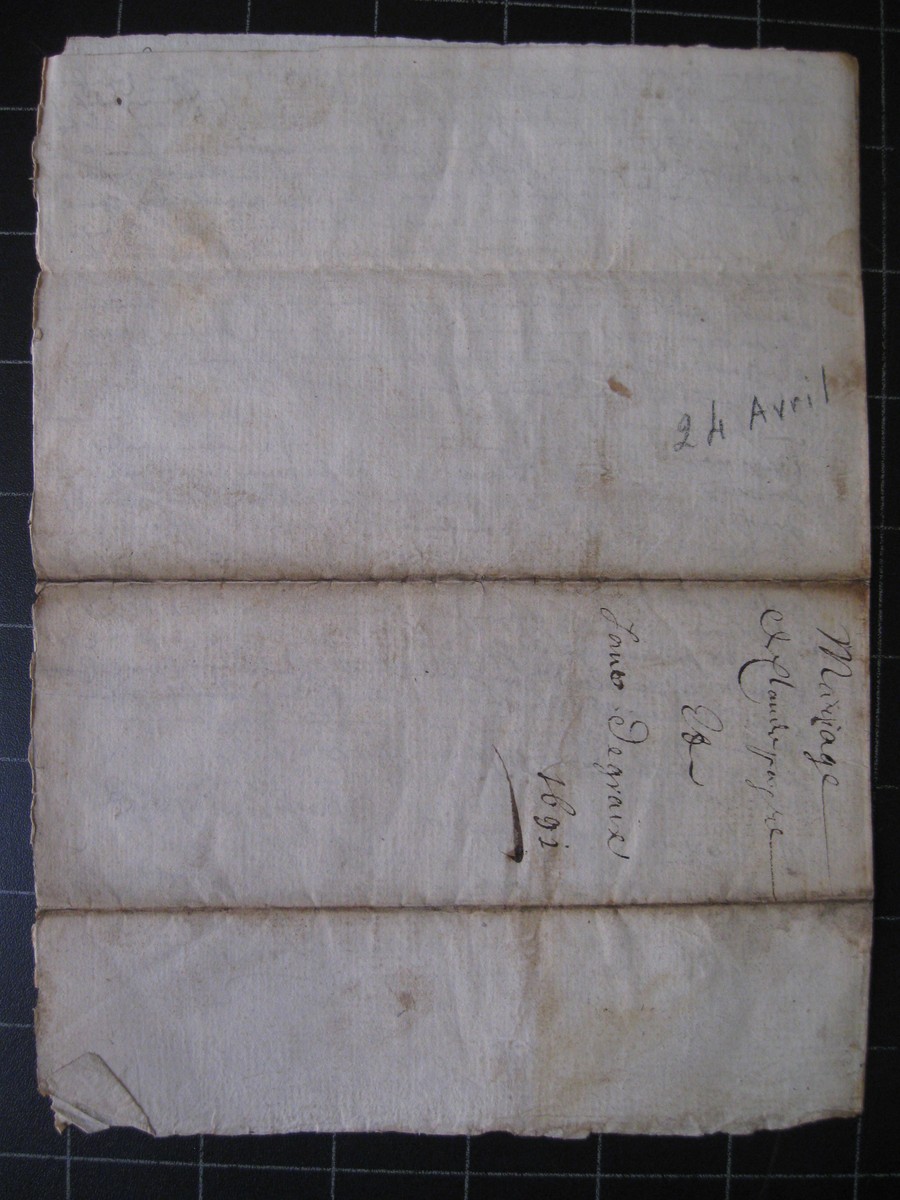 24 Avril
Mariage
de Claude payre
Et
Louis Degraix
1692